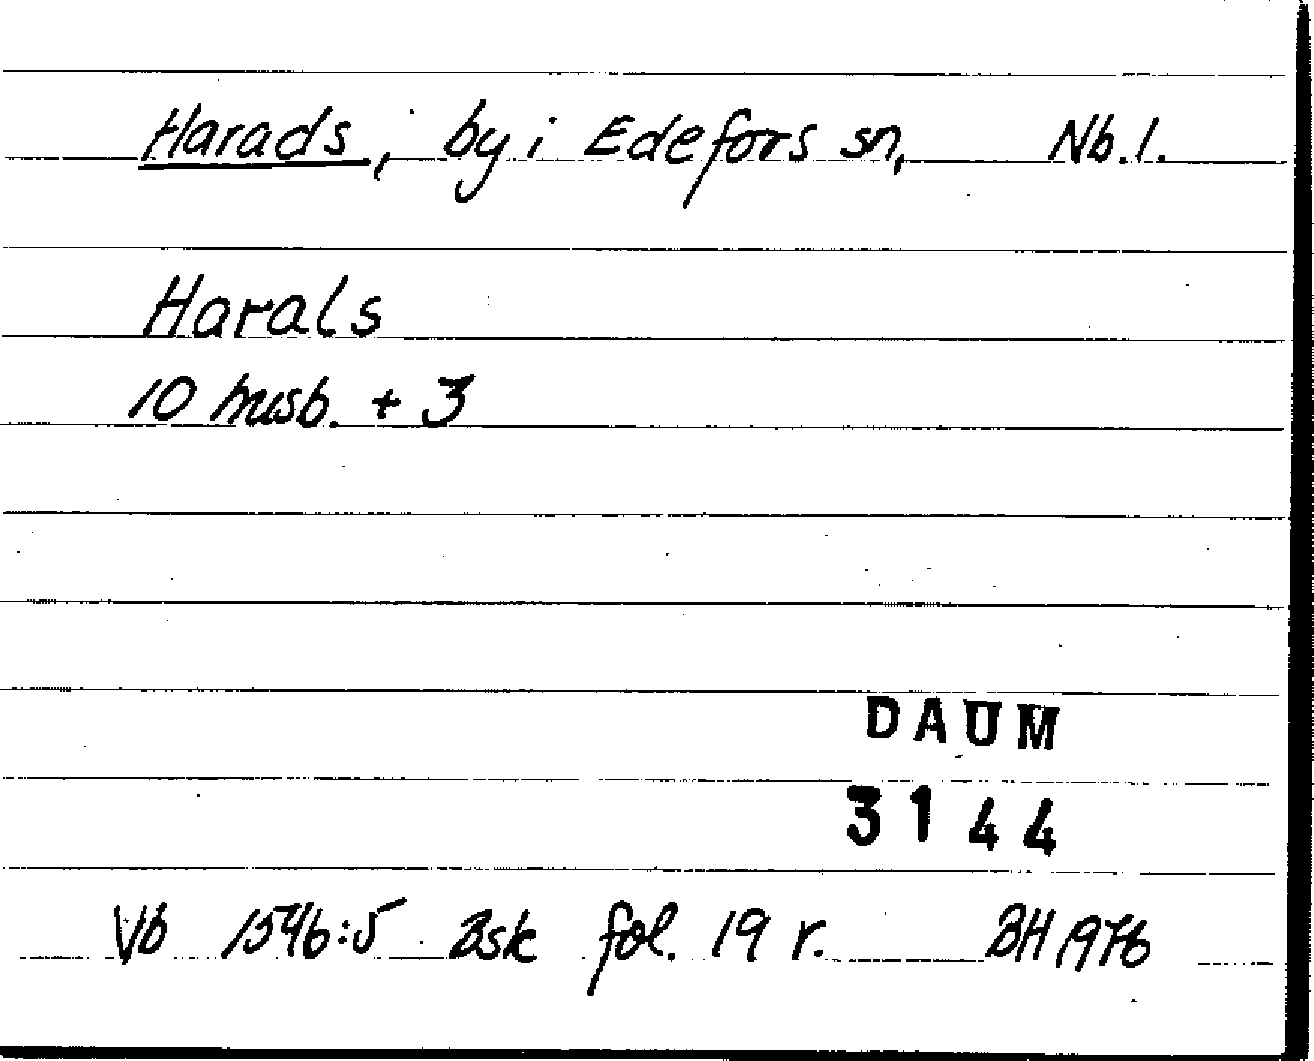 Harads, by i Edefors sn, Nb. l.
Harals
10 husb. + 3
DAUM
3144
Vb 1546:5 Bsk fol. 19 r. BH 1976